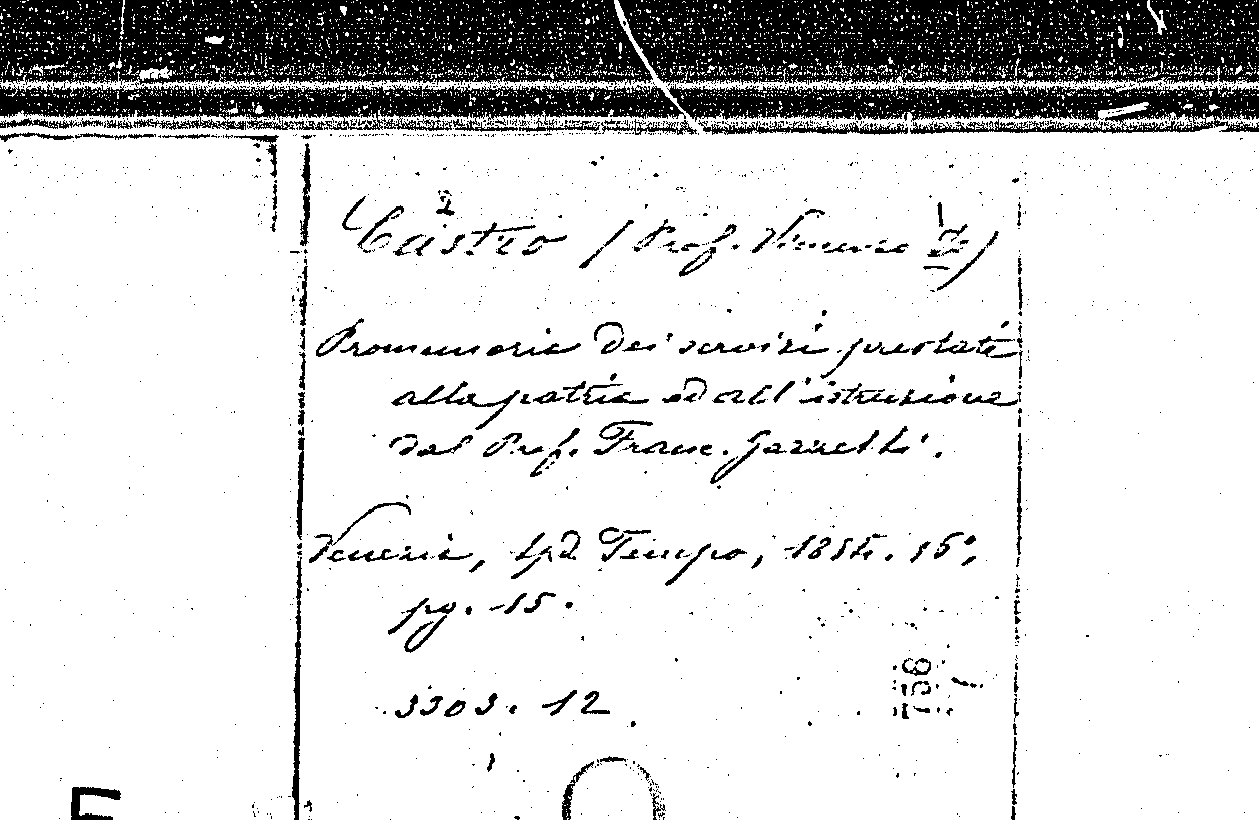 2
Castro (Prof. Vincenzo de)
Promemoria dei servizi prestati
alla patria ed all'istruzione
dal Prof. Franc. Gazzetti.
Venezia, tip. Tempo, 16°,
pg. 15.
3303. 12.
756
E